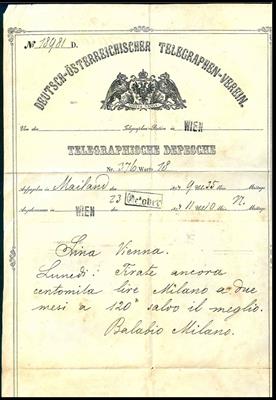 № 18981 D.
DEUTSCH-ÖSTERREICHISCHER TELEGRAPHEN-VEREIN.
Von der Telegraphen-Station in WIEN
TELEGRAPHISCHE DEPESCHE
Nr. 376 Worte 18
Aufgegeben in Mailand den 9 Uhr 35 Min. Mittags
23 October
Angekommen in WIEN den 11 Uhr 10 Min. N. Mittags
Sina Vienna.
Lunedi: Tirate ancora
centomila lire Milano a due
mesi a 120 salvo il meglio.
Balabio Milano.